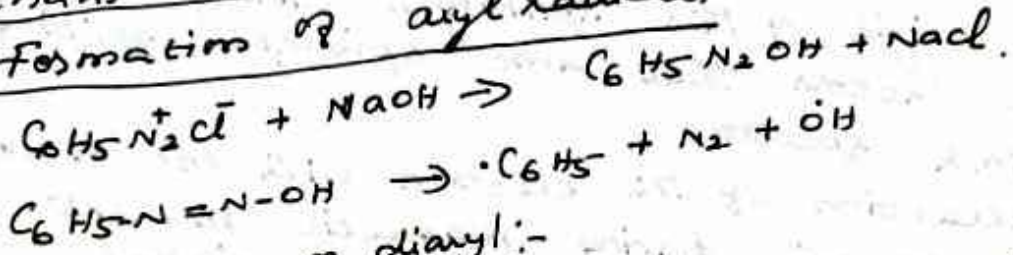 Formation of aryl
C6H5N2⁺Cl⁻ + NaOH → C6H5N2OH + Nacl.
C6H5-N=N-OH → ·C6H5 + N2 + ȮH
diaryl:-